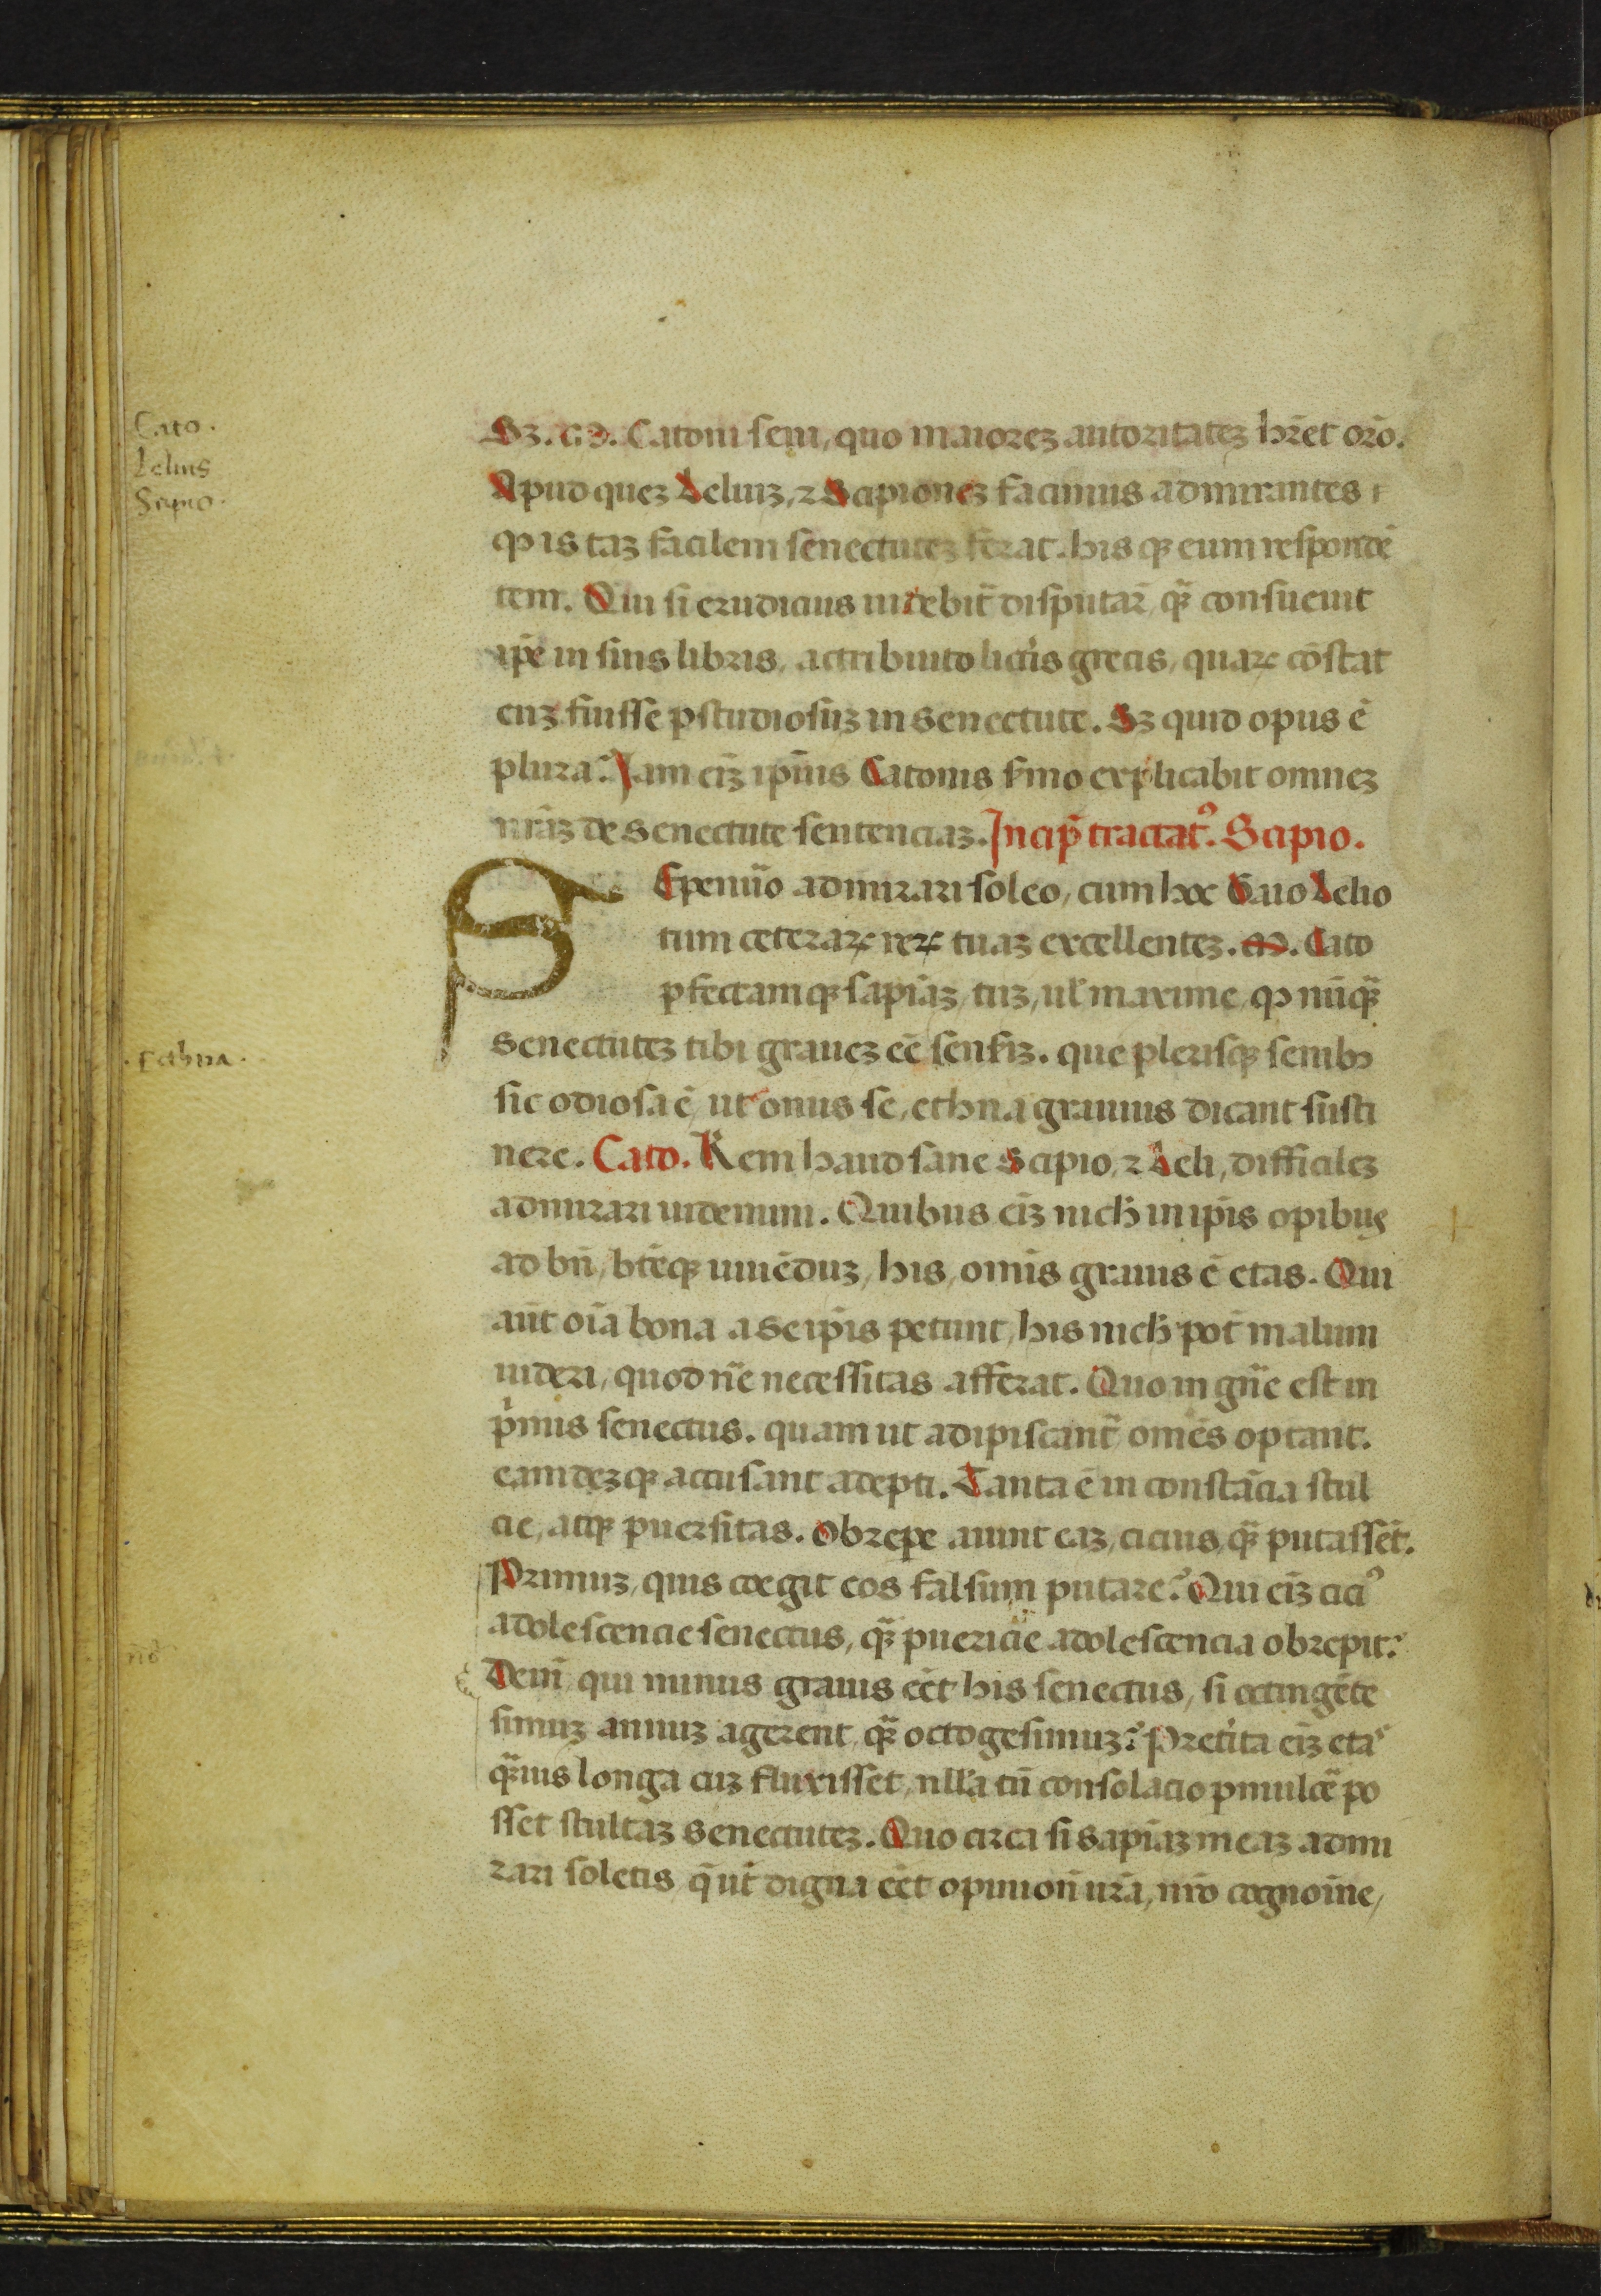 Cato.
Lelius
Scipio.
Sꝫ. M. Catoni seni, quo maioreꝫ autoritateꝫ hr̄et orō.
Apud queꝫ Leliuꝫ, ⁊ Scipioneꝫ facimus admirantes
ꝙ is taꝫ facilem senectuteꝫ ferat. his qꝫ eum respondē
tem. Qui si erudicius uidebit̄ disputar̄, qꝫ̄ consueuit
ip̄e in suis libris, actribuito lict̓is grecis, quaꝝ cōstat
euꝫ fuisse pstudiosuꝫ in senectute. Sꝫ quid opus ē
plura? Iam eīꝫ ipīus Catonis s̓mo explicabit omneꝫ
nr̄aꝫ de Senectute sentenciaꝫ. Incip̄ tractatꝰ. Scipio.
SEpenūo admirari soleo, cum hoc Gaio Lelio
tum ceteraꝝ reꝝ tuaꝫ excellenteꝫ. M. Cato
pfectamqꝫ sapīaꝫ, tuꝫ, ul̓ maxime, ꝙ nūqꝫ̄
.ethna.
Senectuteꝫ tibi graueꝫ eē senseriꝫ. que plerisqꝫ senibꝫ
sic odiosa ē, ut onus se, ethna grauius dicant susti
nere. Cato. Rem haud sane Scipio, ⁊ Leli, difficileꝫ
admirari uidemini. Quibus eīꝫ nich̓ in ip̄is opibus
ad bn̄, btēqꝫ uiuēduꝫ, his, omīs grauis ē etas. Qui
aūt oīa bona a se ip̄is petunt, his nich̓ pōt malum
uideri, quod nē̄ necessitas afferat. Quo in gn̄e est in
p̓mis senectus. quam ut adipiscant̄ omēs optant.
eamdeꝫqꝫ accusant adepti. Tanta ē in constācia stul
cie, atqꝫ puersitas. Obrepe aiunt eaꝫ, cicius, qꝫ̄ putassēt.
Primuꝫ, quis coegit eos falsum putare? Qui eīꝫ ciciꝰ
adolescencie senectus, qꝫ̄ puericie adolescencia obrepit?
nō
Deīn qui minus grauis eēt his senectus, si octingēte
simuꝫ annuꝫ agerent, qꝫ̄ octogesimuꝫ? Pretīta eīꝫ etas
qꝫ̄uis longa cuꝫ fluxisset, nll̓a tn̄ consolacio pmulcē po
sset stultaꝫ senectuteꝫ. Quo circa si sapīaꝫ meaꝫ admi
rari soletis, q̄ ut̄ digna eēt opinion̄ ur̄a, nr̄o cognoīne,